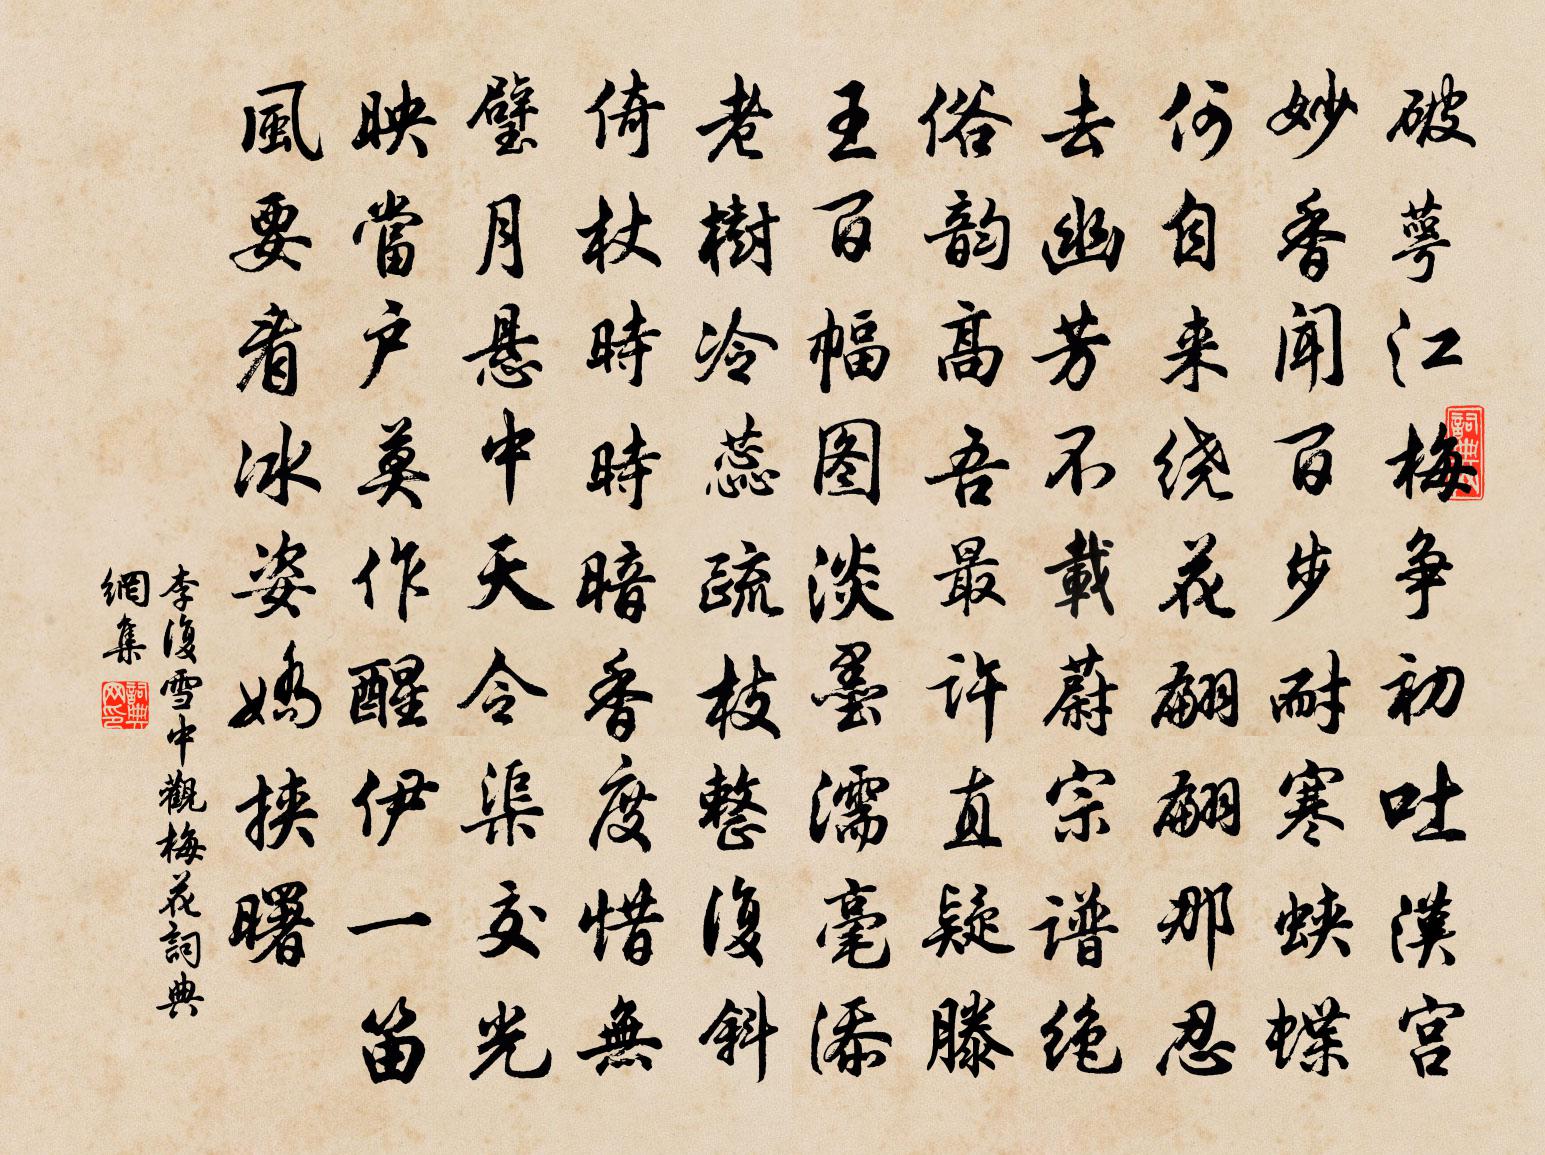 破萼江梅争初吐漢宫
妙香闻百步耐寒蛱蝶
何自来绕花翩翩那忍
去幽芳不載蔚宗谱绝
俗韵高吾最许直疑滕
王百幅图淡墨濡毫添
老樹冷蕊疏枝整復斜
倚杖時時暗香度惜無
璧月悬中天令渠交光
映當户莫作醒伊一笛
風要看冰姿嬌挟曙
李復雪中觀梅花詞典
網集
詞典